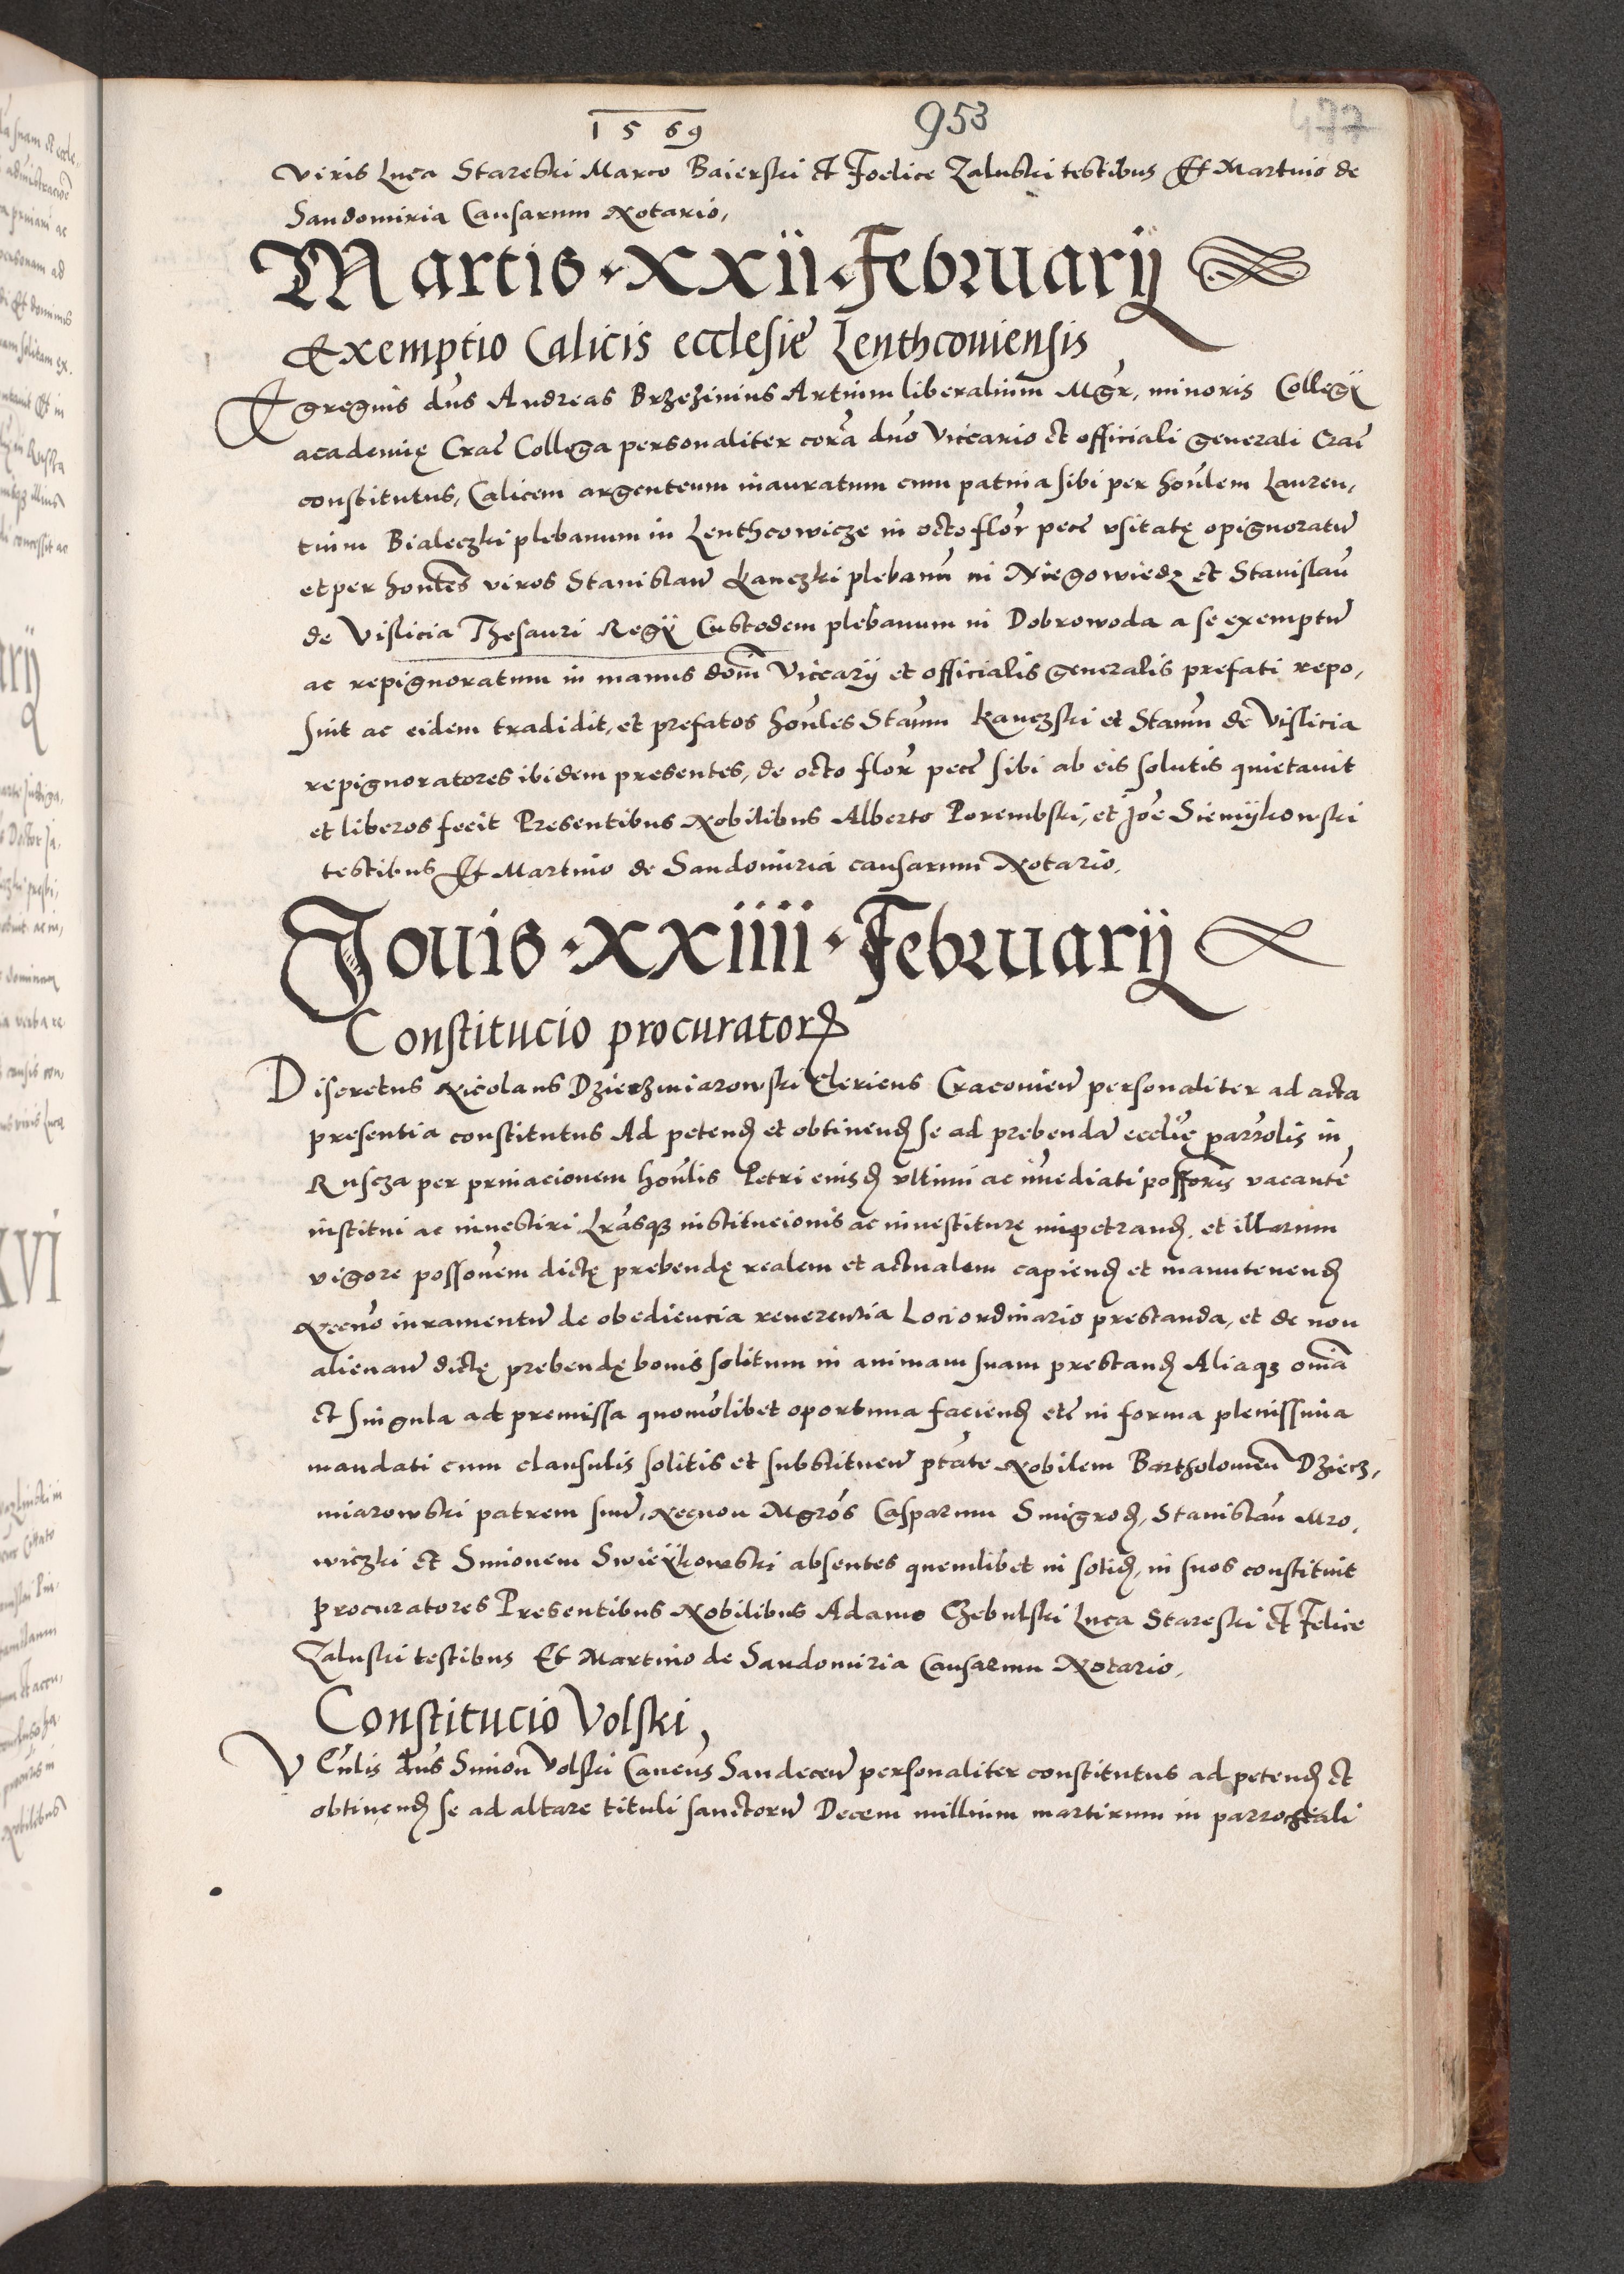 1569 953 477
viris Luca Stareski Marco Baierski et Foelice Zaluski testibus Et Martino de
Sandomiria Causarum Notario,
Martis · xxii · Februarij
Exemptio Calicis ecclesie Lenthcoviensis
Egregius dns Andreas Brzezinius Artium liberalium Mgr, minoris Collegij
academię Crac Collega personaliter cora dno Vicario et officiali generali Crac
constitutus, Calicem argenteum inauratum cum patina sibi per honlem Lauren,
tium Bialeczki plebanum in Lenthcowicze in octo flor pece usitatę opignoratu
et per honles viros Stanislau Kanczki plebanu in Niegowiedz et Stanislau
de Vislicia Thesauri Regij Custodem plebanum in Dobrowoda a se exemptu
ac repignoratum in manus domi Vicarij et officialis generalis prefati repo,
suit ac eidem tradidit, et prefatos honles Staum Kanczski et Staum de Vislicia
repignoratores ibidem presentes, de octo flor pece sibi ab eis solutis quietavit
et liberos fecit Presentibus Nobilibus Alberto Porembski, et Joe Sienijkowski
testibus Et Martino de Sandomiria causarum Notario,
Jovis · xxiiii · Februarij
Constitucio procurator
Discretus Nicolaus Dzierzmiarowski Clericus Cracovien personaliter ad acta
presentia constitutus Ad petend et obtinend se ad prebenda ecclie parrolis in
Ruscza per privacionem honlis Petri eiusd ultimi ac imediati possoris vacante
institui ac investiri Lrasq institucionis ac investiturę impetrand, et illarum
vigore possonem dictę prebendę realem et actualem capiend et manutenend
Necno iuramentu de obediencia reverentia Loci ordinario prestanda, et de non
alienan dictę prebendę bonis solitum in animam suam prestand Aliaq omia
et singula ad premissa quomolibet oportuna faciend etc in forma plenissima
mandati cum clausulis solitis et substituen ptate Nobilem Bartholomeu Dzierz,
miarowski patrem suu, Necnon Mgros Casparum Smigrod, Stanislau Mro,
wiczki et Simonem Swieykowski absentes quemlibet in solid, in suos constituit
procuratores Presentibus Nobilibus Adamo Czebulski Luca Stareski et Felice
Zaluski testibus Et Martino de Sandomiria Causarum Notario,
Constitucio Volski,
Venlis dns Simon Volski Cancus Sandecen personaliter constitutus ad petend et
obtinend se ad altare tituli sanctoru Decem millium martirum in parrochiali